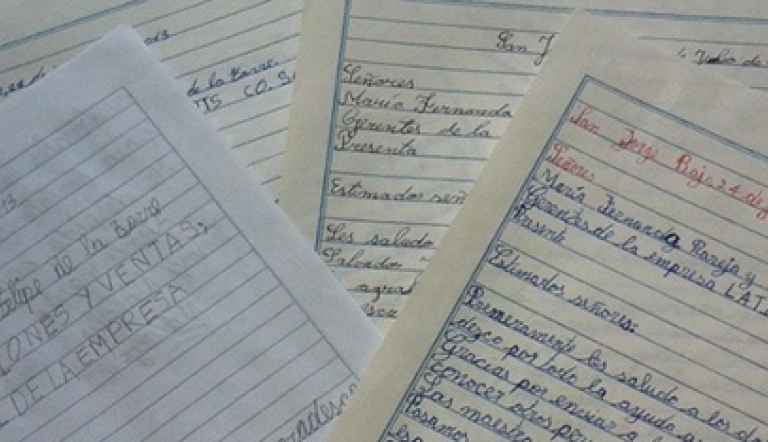 de la Torre
CO. S
San J
Señores
María Fernanda
Gerentes de la
Presenta
Estimados señ
Les saludo
Salvador
agrad
Julio de
San Jorge Baja 24 de j
Señores
María Fernanda Pareja y
Gerentes de la empresa LATI
Pasente
Estimados señores:
Primeramente les saludo a los do
dezco por todo la ayuda a
Gracias por enviar a
conocer otros por
Las maestra
Pasamos
13
Felipe de la Torre
IONES Y VENTAS,
DE LA EMPRESA